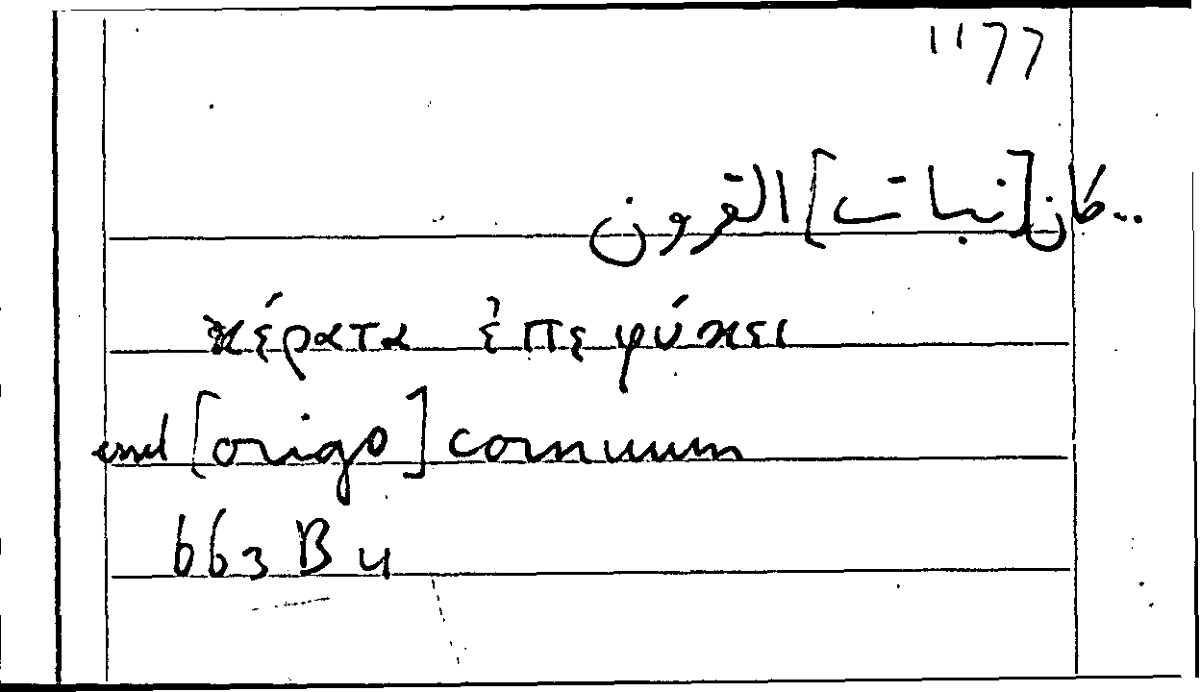 1177
..كان [نبات] القرون
κέρατα ἐπεφύκει
esset [origo] cornuum
663 B 4